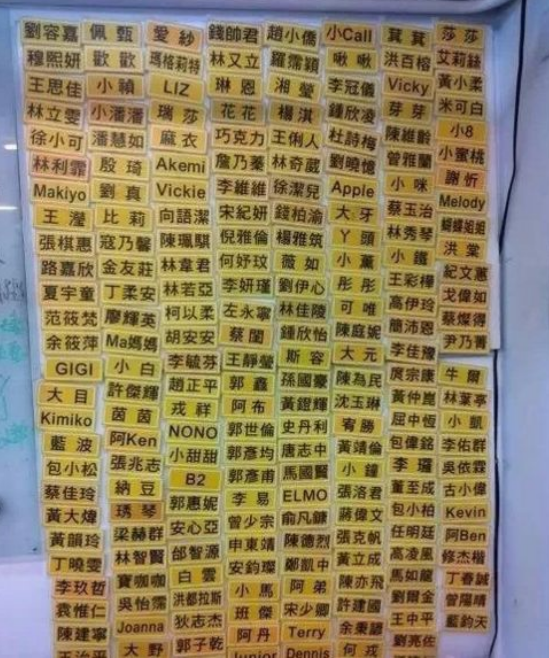 劉容嘉 佩甄 愛紗 錢帥君 趙小僑 小Call 萁萁 莎莎
穆熙妍 歡歡 瑪格莉特 林又立 羅霈穎 啾啾 洪百榕 艾莉絲
王思佳 小禎 LIZ 琳恩 湘瑩 李冠儀 Vicky 黃小柔
林立雯 小潘潘 瑞莎 花花 楊淇 鍾欣凌 芽芽 米可白
徐小可 潘慧如 麻衣 巧克力 王俐人 杜詩梅 陳維齡 小8
林利霏 殷琦 Akemi 詹乃蓁 林奇葳 劉曉憶 曾雅蘭 小蜜桃
Makiyo 劉真 Vickie 李維維 徐潔兒 Apple 小咪 謝忻
王瀅 比莉 向語潔 宋紀妍 錢柏渝 大牙 蔡玉治 Melody
張棋惠 寇乃馨 陳珮騏 倪雅倫 楊雅筑 丫頭 林秀琴 蝴蝶姐姐
路嘉欣 金友莊 林韋君 何妤玟 薇如 小薰 小鐵 洪棠
夏宇童 丁柔安 林若亞 李妍瑾 劉伊心 彤彤 王彩樺 紀文蕙
范筱梵 廖輝英 柯以柔 左永寧 林佳陵 可唯 高伊玲 戈偉如
余筱萍 Ma媽媽 胡安安 蔡閨 鍾欣怡 陳庭妮 簡沛恩 蔡燦得
GIGI 小白 李毓芬 王靜瑩 斯容 大元 李佳豫 尹乃菁
大目 許傑輝 趙正平 郭鑫 孫國豪 陳為民 屈宗康 牛爾
Kimiko 茵茵 戎祥 阿布 黃鐙輝 沈玉琳 黃仲崑 林葉亭
藍波 阿Ken NONO 郭世倫 史丹利 宥勝 屈中恆 小凱
包小松 張兆志 小甜甜 郭彥均 唐志中 黃靖倫 包偉銘 李佑群
蔡佳玲 納豆 B2 郭彥甫 馬國賢 小鐘 李㼈 吳依霖
黃大煒 琇琴 郭惠妮 李易 ELMO 張洛君 董至成 古小偉
黃韻玲 梁赫群 安心亞 曾少宗 俞凡鏮 蔣偉文 包小柏 Kevin
丁曉雯 林智賢 邰智源 申東靖 陳德烈 張克帆 任明廷 阿Ben
李玖哲 寶咖咖 白雲 安鈞璨 鄭凱中 黃立成 高凌風 修杰楷
袁惟仁 吳怡霈 洪都拉斯 小馬 阿弟 陳亦飛 馬如龍 丁春誠
陳建寧 Joanna 狄志杰 班傑 宋少卿 許建國 劉爾金 曾陽晴
王治平 大野 郭子乾 阿丹 Terry 余秉諺 王中平 藍鈞天
Junior Dennis 何戎 劉亮佐